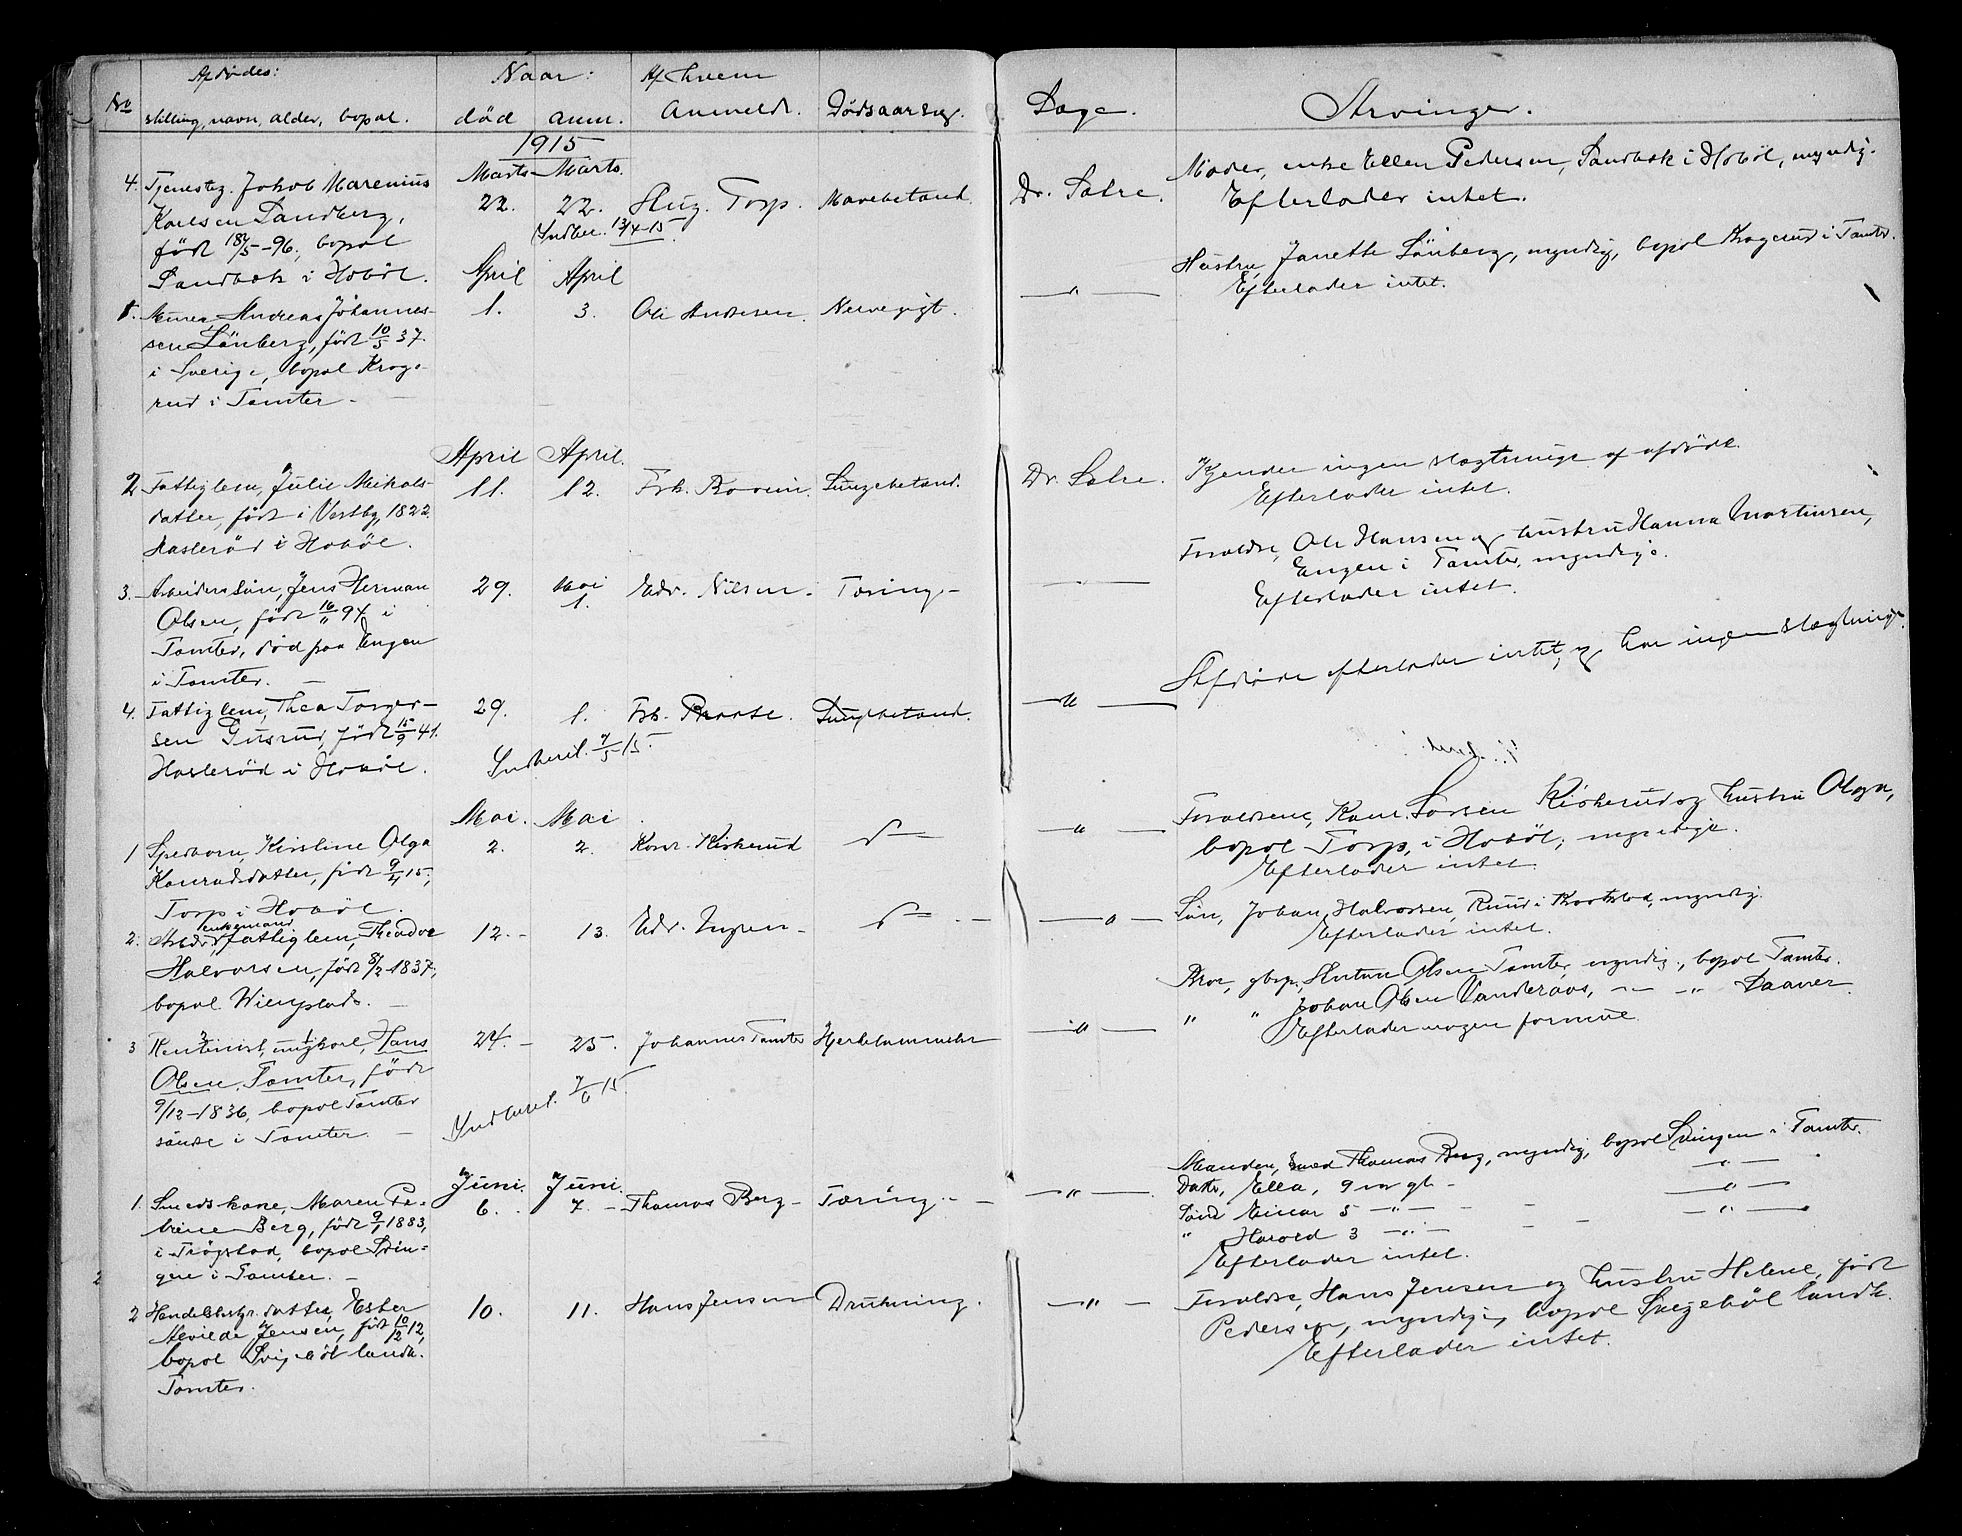 No
Afdødes:
stilling, navn, alder, bopæl.
Naar:
død
anm.
Af hvem
Anmeldt.
Dødsaarsag.
Læge.
Arvinger.
1915
Marts Marts.
4. Tjenesteg. Jokob Marenius
Karlsen Sandberg,
født 18/5-96, bopæl
Sandbæk i Hobøl.
22. 22. Aug. Torp. Mavebetænd.
Indber. 13/4-15.
Dr. Sætre.
Moder, enke Ellen Pedersen, Sandbæk i Hobøl, myndig.
Efterlader intet.
April April
5. Murer Andreas Johannes-
sen Lönberg, født 10/5 37.
i Sverige, bopæl Krog-
rud i Tomter -
1. 3. Ole Andersen. Nervegigt.
— " —
Hustru, Janette Lönberg, myndig, bopæl Krogerud i Tomter.
Efterlader intet.
April April.
2 Fattiglem, Julie Mikals-
datter, født i Vestby, 1822.
Haslerød i Hobøl.
11. 12. Frk. Lungebetænd.
Dr. Sætre.
Kjender ingen slægtninge af afdøde.
Efterlader intet.
3. Arbeiders sön, Jens Herman
Olsen, født 16/11 94 i
Tomter, död paa Engen
i Tomter. —
29. Mai
1. Edv. Nilsen. Tæring -
— " —
Foreldre, Ole Hansen og hustru Hanna Martinsen,
Engen i Tomter, myndige.
Efterlader intet.
4. Fattiglem, Thea Torger-
sen Gusrud, født 15/9 41.
Haslerød i Hobøl.
29. 1. Frk. Lungebetænd.
Indberet. 7/5-15.
— " —
Afdøde efterlader intet, og har ingen slægtninge.
Mai. Mai
1 Spedbarn, Kirstine Olga
Konradsdatter, født 9/4 15,
Torp i Hobøl.
2. 2. Konr. Kirkerud
— " —
Foreldrene, Konr. Larsen Kirkerud og hustru Olga,
bopæl Torp, i Hobøl, myndige.
Efterlader intet.
2. Arbdr, enkemand
fattiglem, Theodor
Halvorsen, født 8/2 1837,
bopæl Wiengslade. —
12. - 13. Edv. Engen -
— " —
Sön, Johan Halvorsen, Ruud i Kroksted, myndig.
Efterlader intet.
3 Rentenist, ungkarl, Hans
Olsen, Tomter, født
9/12-1836, bopæl Tomter
söndre i Tomter. —
24. - 25. Johannes Tomter Hjertelammelse
Indberet. 7/6 15.
— " —
Bror, gbr. Anton Olsen Tomter, myndig, bopæl Tomter.
" " Johan Olsen Vanderaas, — " Daaner.
Efterlader nogen formue
Juni. Juni.
1. Smeds kone, Maren Pe-
trine Berg, født 9/1 1883,
i Trögstad, bopæl Svin-
gen i Tomter. —
6. 7. - Thomas Berg - Tæring. -
— " —
Manden, smed Thomas Berg, myndig, bopæl Svingen i Tomter.
Datter, Ella, 9 aar gl - — " —
Sön Einar 5 — " — — " —
" Harold 3 — " — — " —
Efterlader intet.
2 Handelsbstyr. datter, Ester
Alvilde Jensen, født 10/12 12,
bopæl Svigebøl landh.
Tomter.
10. 11. Hans Jensen Drukning.
— " —
Foreldre, Hans Jensen og hustru Helene, født
Pedersen, myndige, bopæl Svigebøl landh.
Efterlader intet.